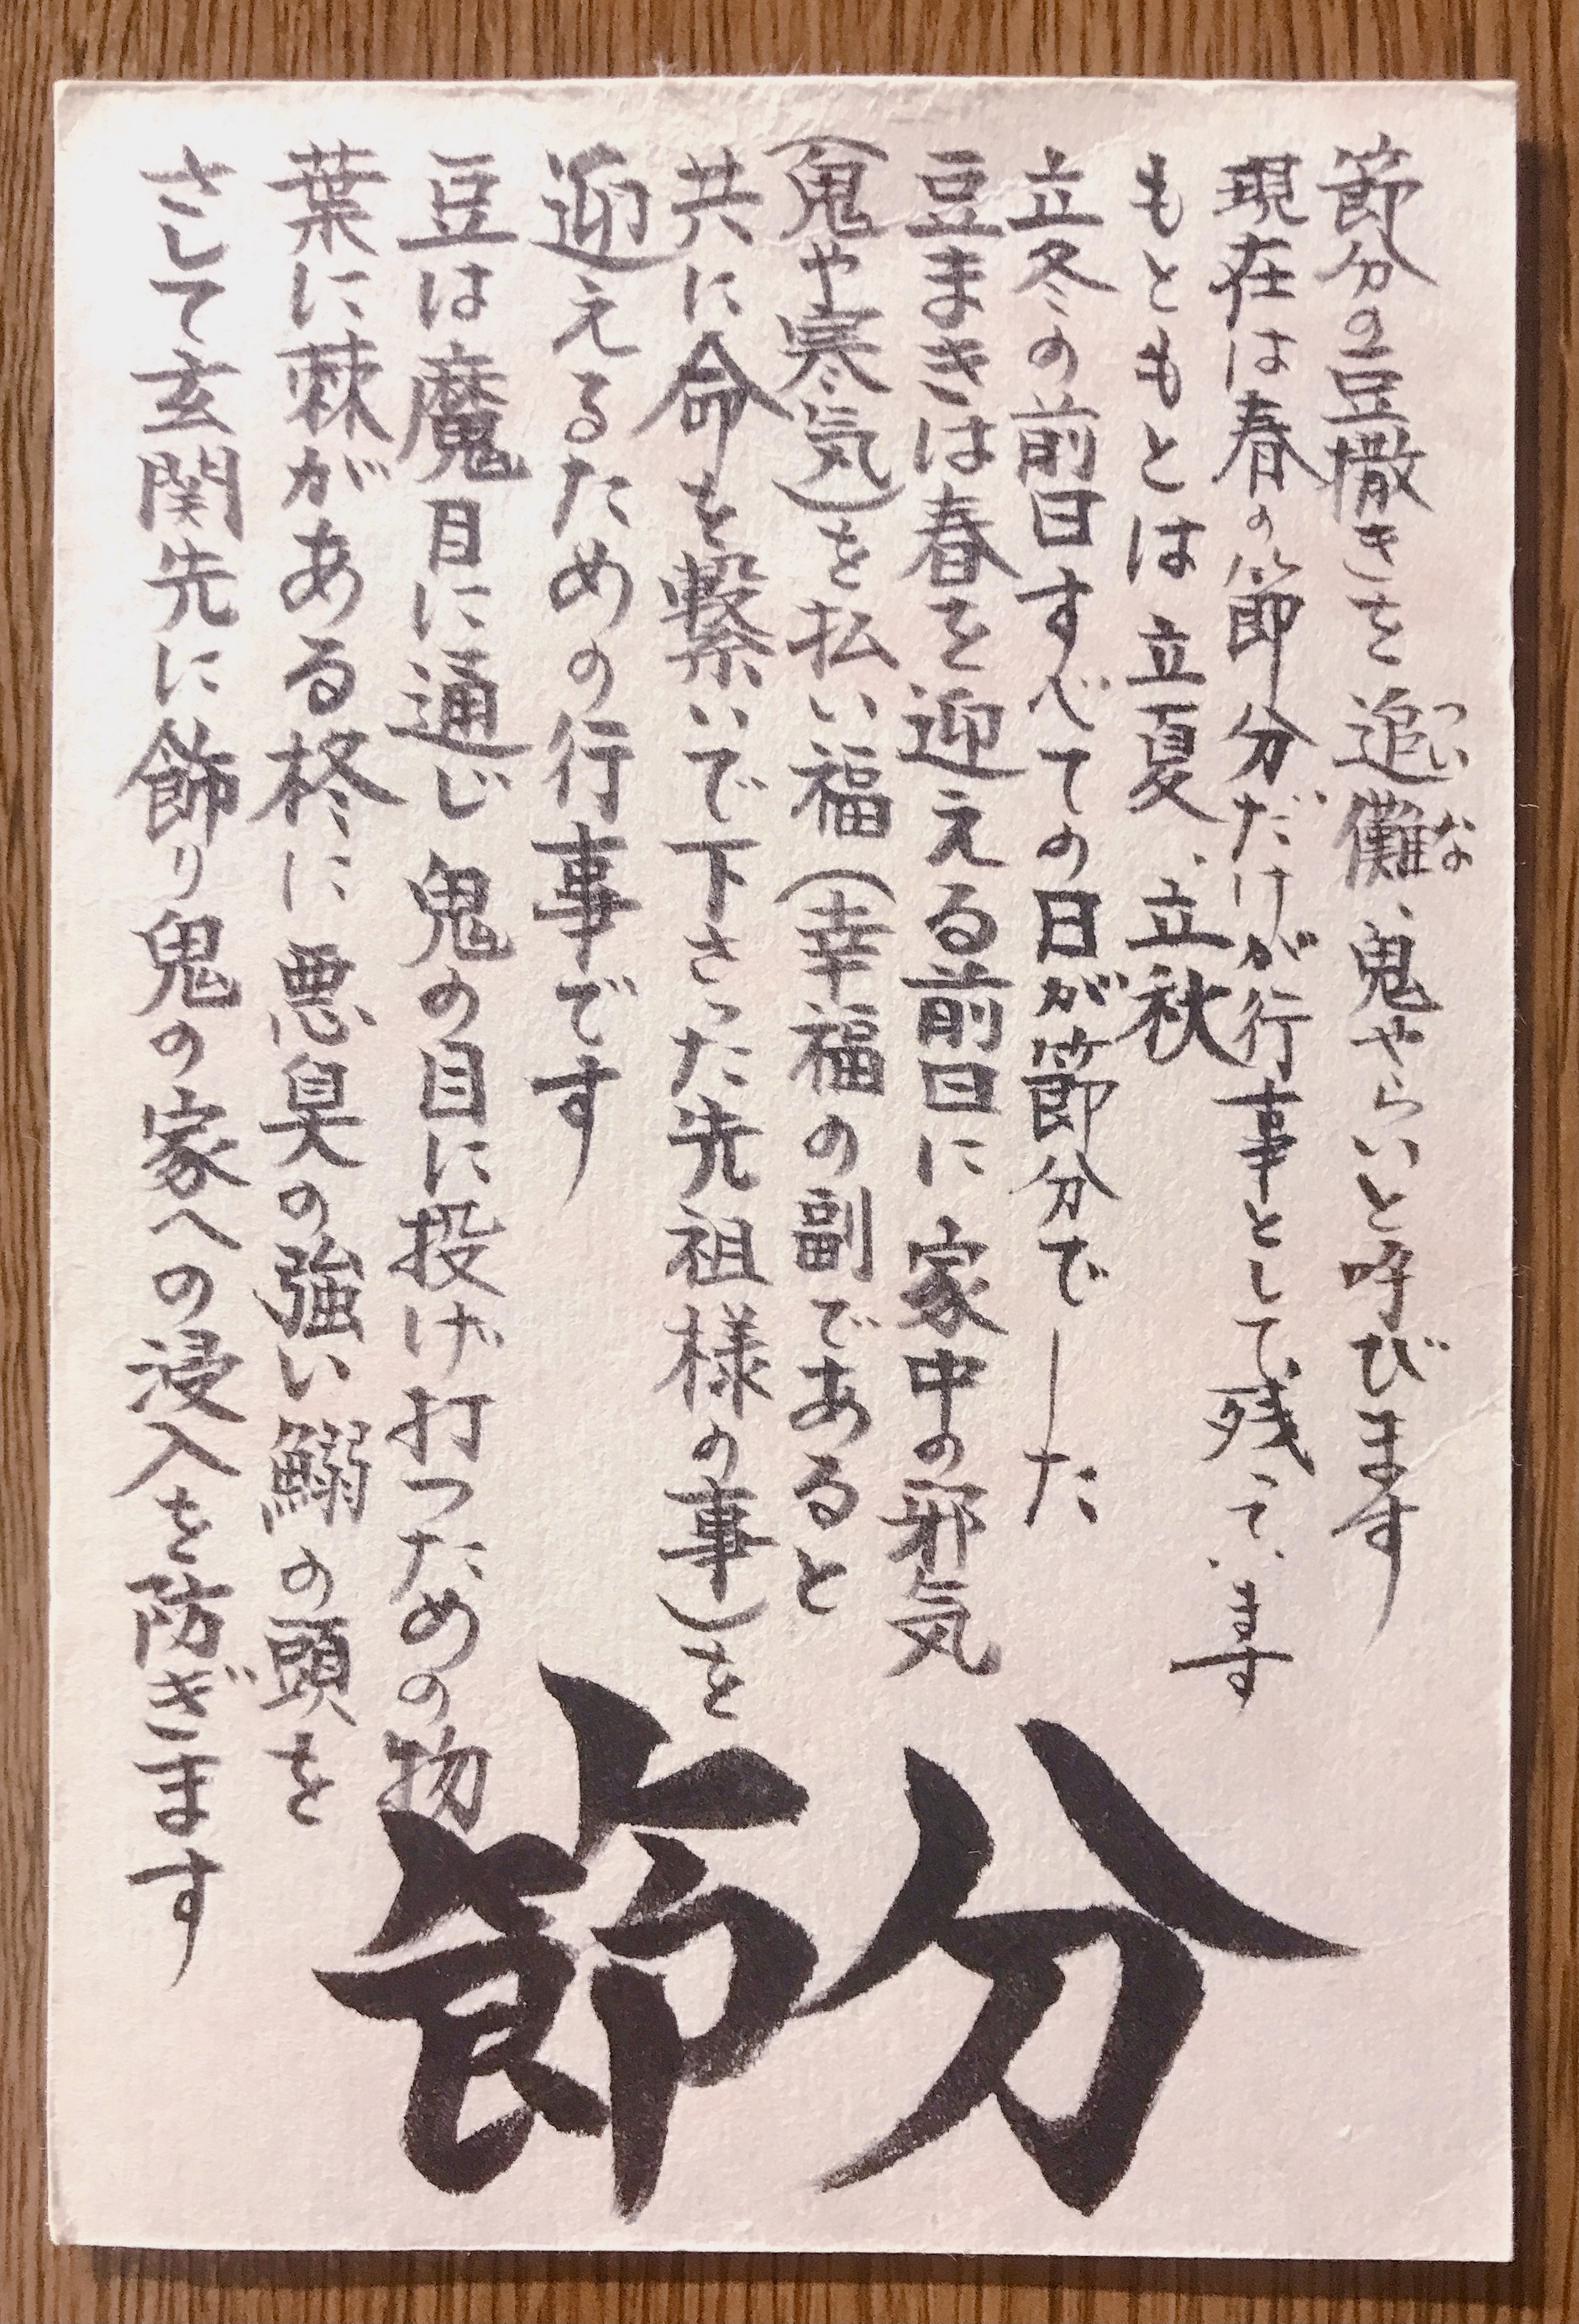 節分の豆撒きを追儺、鬼やらいと呼びます
ついな
現在は春の節分だけが行事として残っています
もともとは立夏、立秋
立冬の前日すべての日が節分でした
豆まきは春を迎える前日に家中の邪気
(鬼や寒気)を払い福(幸福の副であると
共に命を繋いで下さった先祖様の事)を
迎えるための行事です
豆は魔目に通じ鬼の目に投げ打つための物
葉に棘がある柊に悪臭の強い鰯の頭を
さして玄関先に飾り鬼の家への浸入を防ぎます
節分